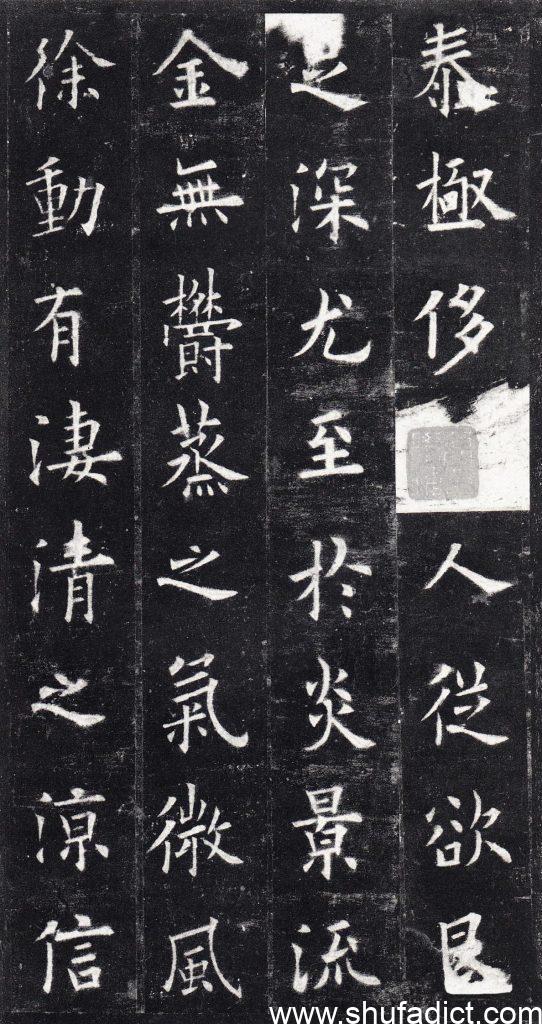 泰極侈人從欲良
深尤至於炎景流
金無鬱蒸之氣微風
徐動有淒清之涼信
www.shufadict.com